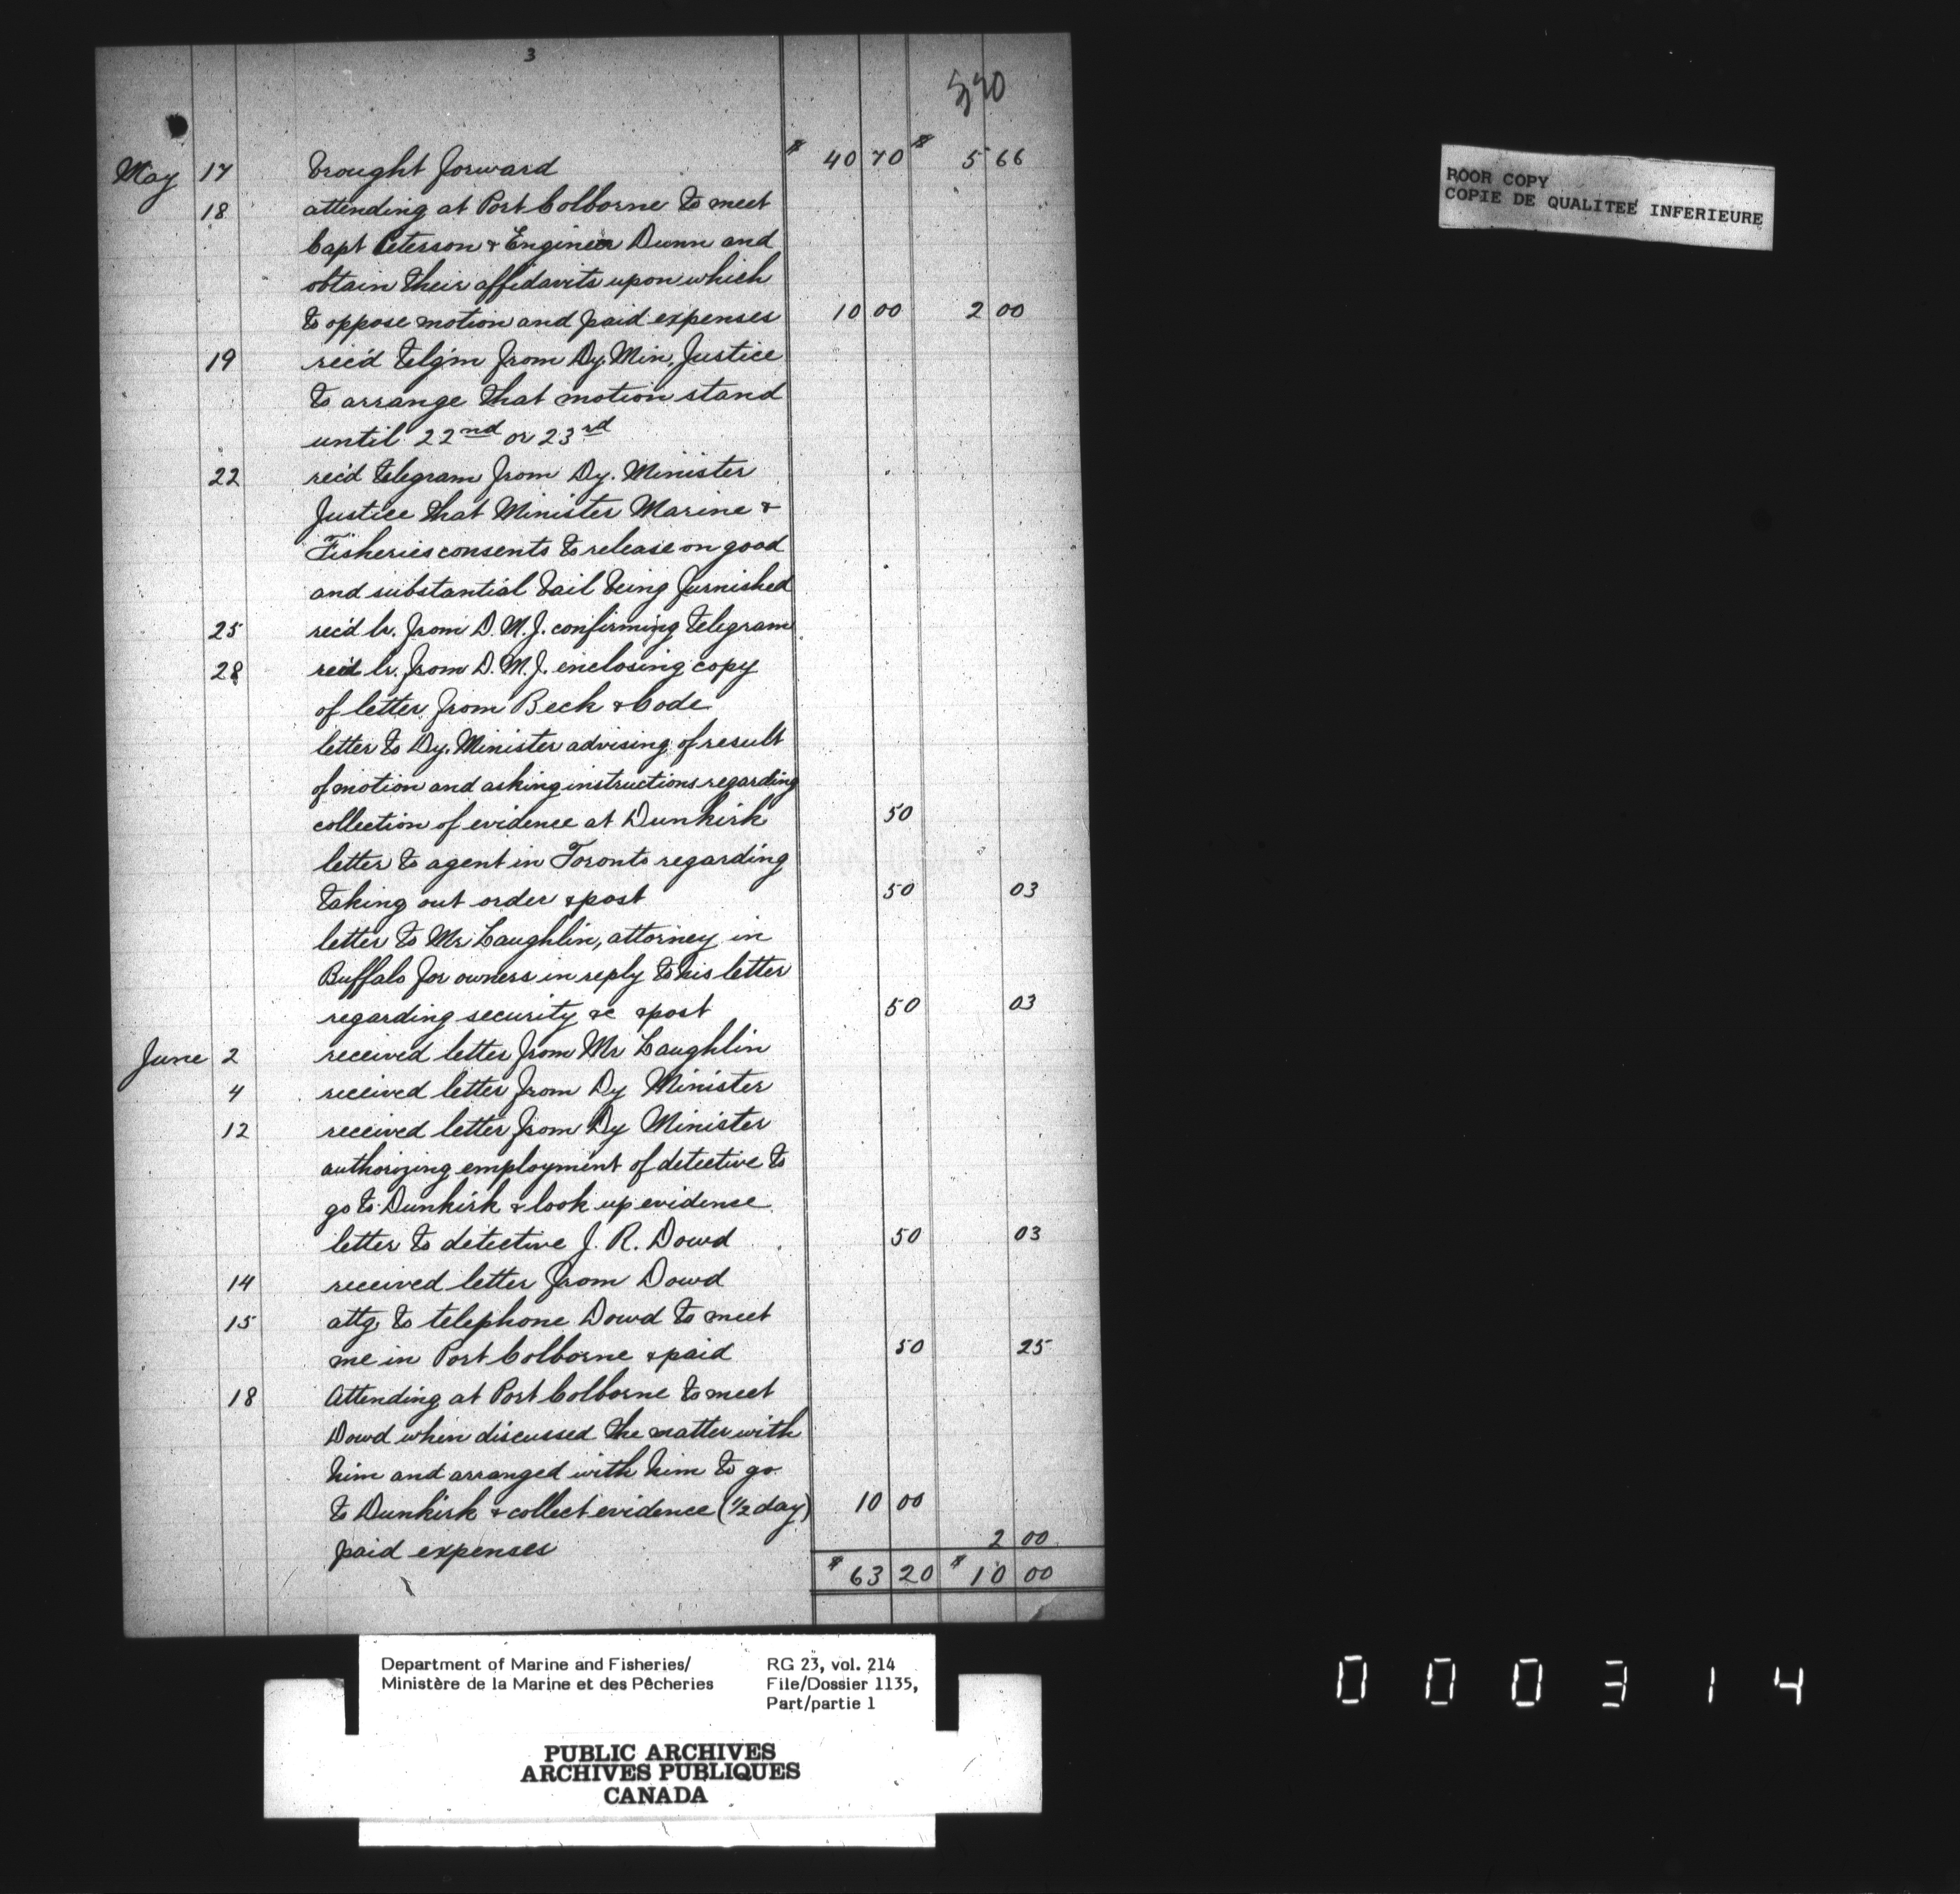 3
May 17 brought forward $ 40 70 $ 5 66
18 attending at Port Colborne to meet
Capt Peterson & Engineer Dunn and
obtain their affidavits upon which
to oppose motion and paid expenses 10 00 2 00
19 rec'd telgm from Dy. Min. Justice
to arrange that motion stand
until 22nd or 23rd
22 rec'd telegram from Dy. Minister
Justice that Minister Marine &
Fisheries consents to release on good
and substantial bail being furnished
25 rec'd lr. from D. M. J. confirming telegram
28 rec'd lr. from D. M. J. enclosing copy
of letter from Beck & Code
letter to Dy. Minister advising of result
of motion and asking instructions regarding
collection of evidence at Dunkirk 50
letter to agent in Toronto regarding
taking out order & post 50 03
letter to Mr Laughlin, attorney in
Buffalo for owners in reply to his letter
regarding security &c & post 50 03
June 2 received letter from Mr Laughlin
4 received letter from Dy Minister
12 received letter from Dy Minister
authorizing employment of detective to
go to Dunkirk & look up evidence
letter to detective J. R. Dowd 50 03
14 received letter from Dowd
15 attg to telephone Dowd to meet
me in Port Colborne & paid 50 25
18 Attending at Port Colborne to meet
Dowd when discussed the matter with
him and arranged with him to go
to Dunkirk & collect evidence (1/2 day) 10 00
paid expenses 2 00
$ 63 20 $ 10 00
ROOR COPY
COPIE DE QUALITEE INFERIEURE
Department of Marine and Fisheries/
Ministère de la Marine et des Pêcheries
RG 23, vol. 214
File/Dossier 1135,
Part/partie 1
PUBLIC ARCHIVES
ARCHIVES PUBLIQUES
CANADA
000314